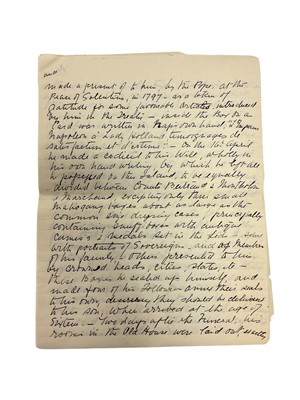 made a present of to him by the Pope, at the
Peace of Tolentino, in 1797 – as a token of
Gratitude for some favorable articles introduced
by him in the Treaty – inside the Box on a
Card was written in Nap's own hand, "L'Empereur
Napoleon à Lady Holland temoignage de
satisfaction et d'estime" – On the 16 April
he made a codicil to his Will, wholly in
his own hand writing by which he left all
he possessed on this Island, to be equally
divided between Counts Bertrand & Montholon
& Marchand, excepting only three small
Mahogany boxes about as large as the
common sized dressing cases, principally
containing snuff boxes with antique
cameos & medals set in the lids – some
with portraits of Sovereigns, and of Members
of his family, & others presented to him
by crowned heads, cities, states, &c –
These Boxes he sealed up himself, and
made four of his followers their seals
to his own, desiring they should be delivered
to his Son, when arrived at the age of
Sixteen. – Two days after the Funeral, his
rooms in the Old House were laid out exactly